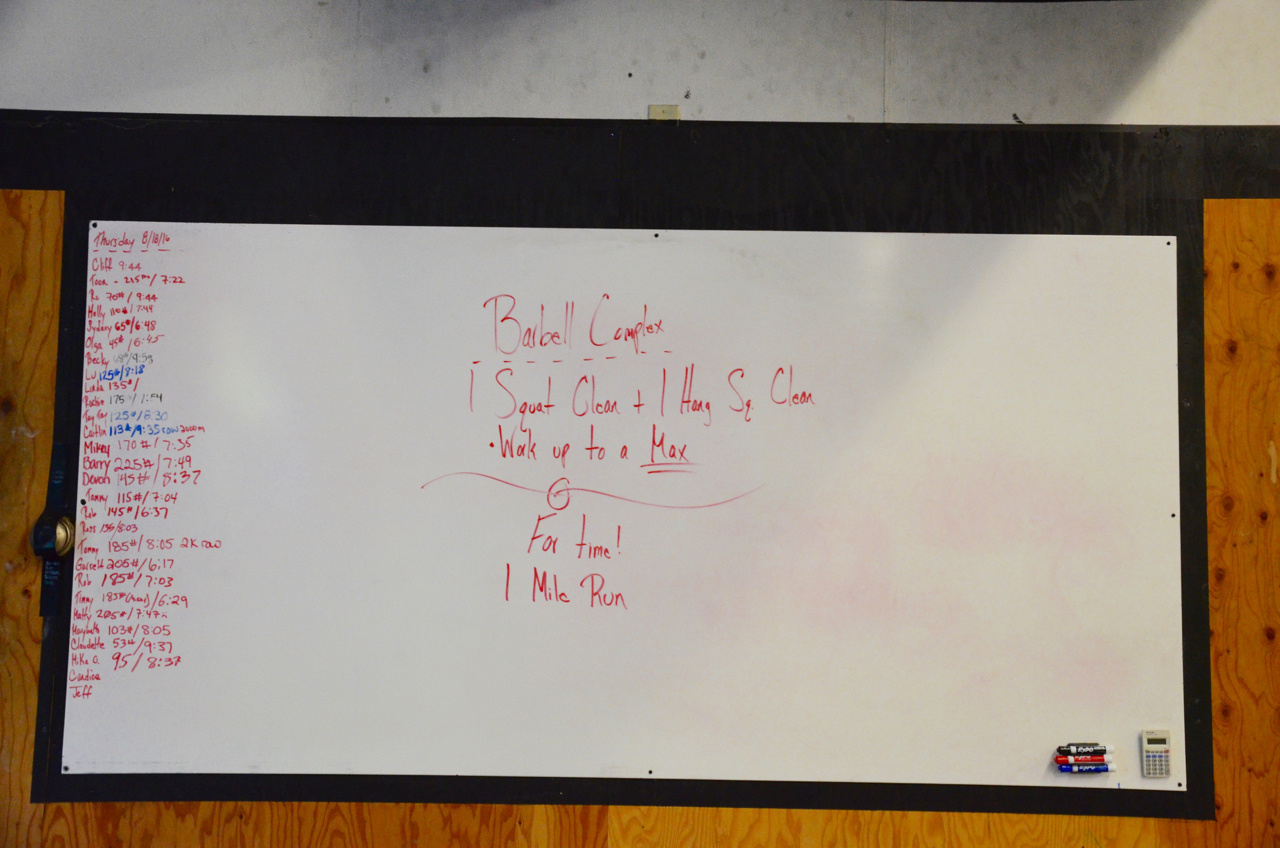 Thursday 8/18/16
Cliff 9:44
7:22
70# / 9:44
Holly
Sydney 65#/6:48
Olga 45# / 6:45
Becky
LU 125#/8:18
Linda 135#/
175
Tay Tay 125#/8:30
Caitlin 113#/9:35 row 2000m
Mikey 170#/7:35
Barry 225#/7:49
Devon 145#/8:37
Tammy 115#/7:04
Rob 145#/6:37
Russ 135/8:03
Tommy 185#/8:05 2K row
Garrett 205#/6:17
Rob 185#/7:03
Timmy 185# /6:29
Matty 205#/7:47
Marybeth 103#/8:05
Claudette 53#/9:37
Mike O. 95/8:37
Candice
Jeff
Barbell Complex
1 Squat Clean + 1 Hang Sq. Clean
• Work up to a Max
For time!
1 Mile Run
EXPO
EXPO
EXPO